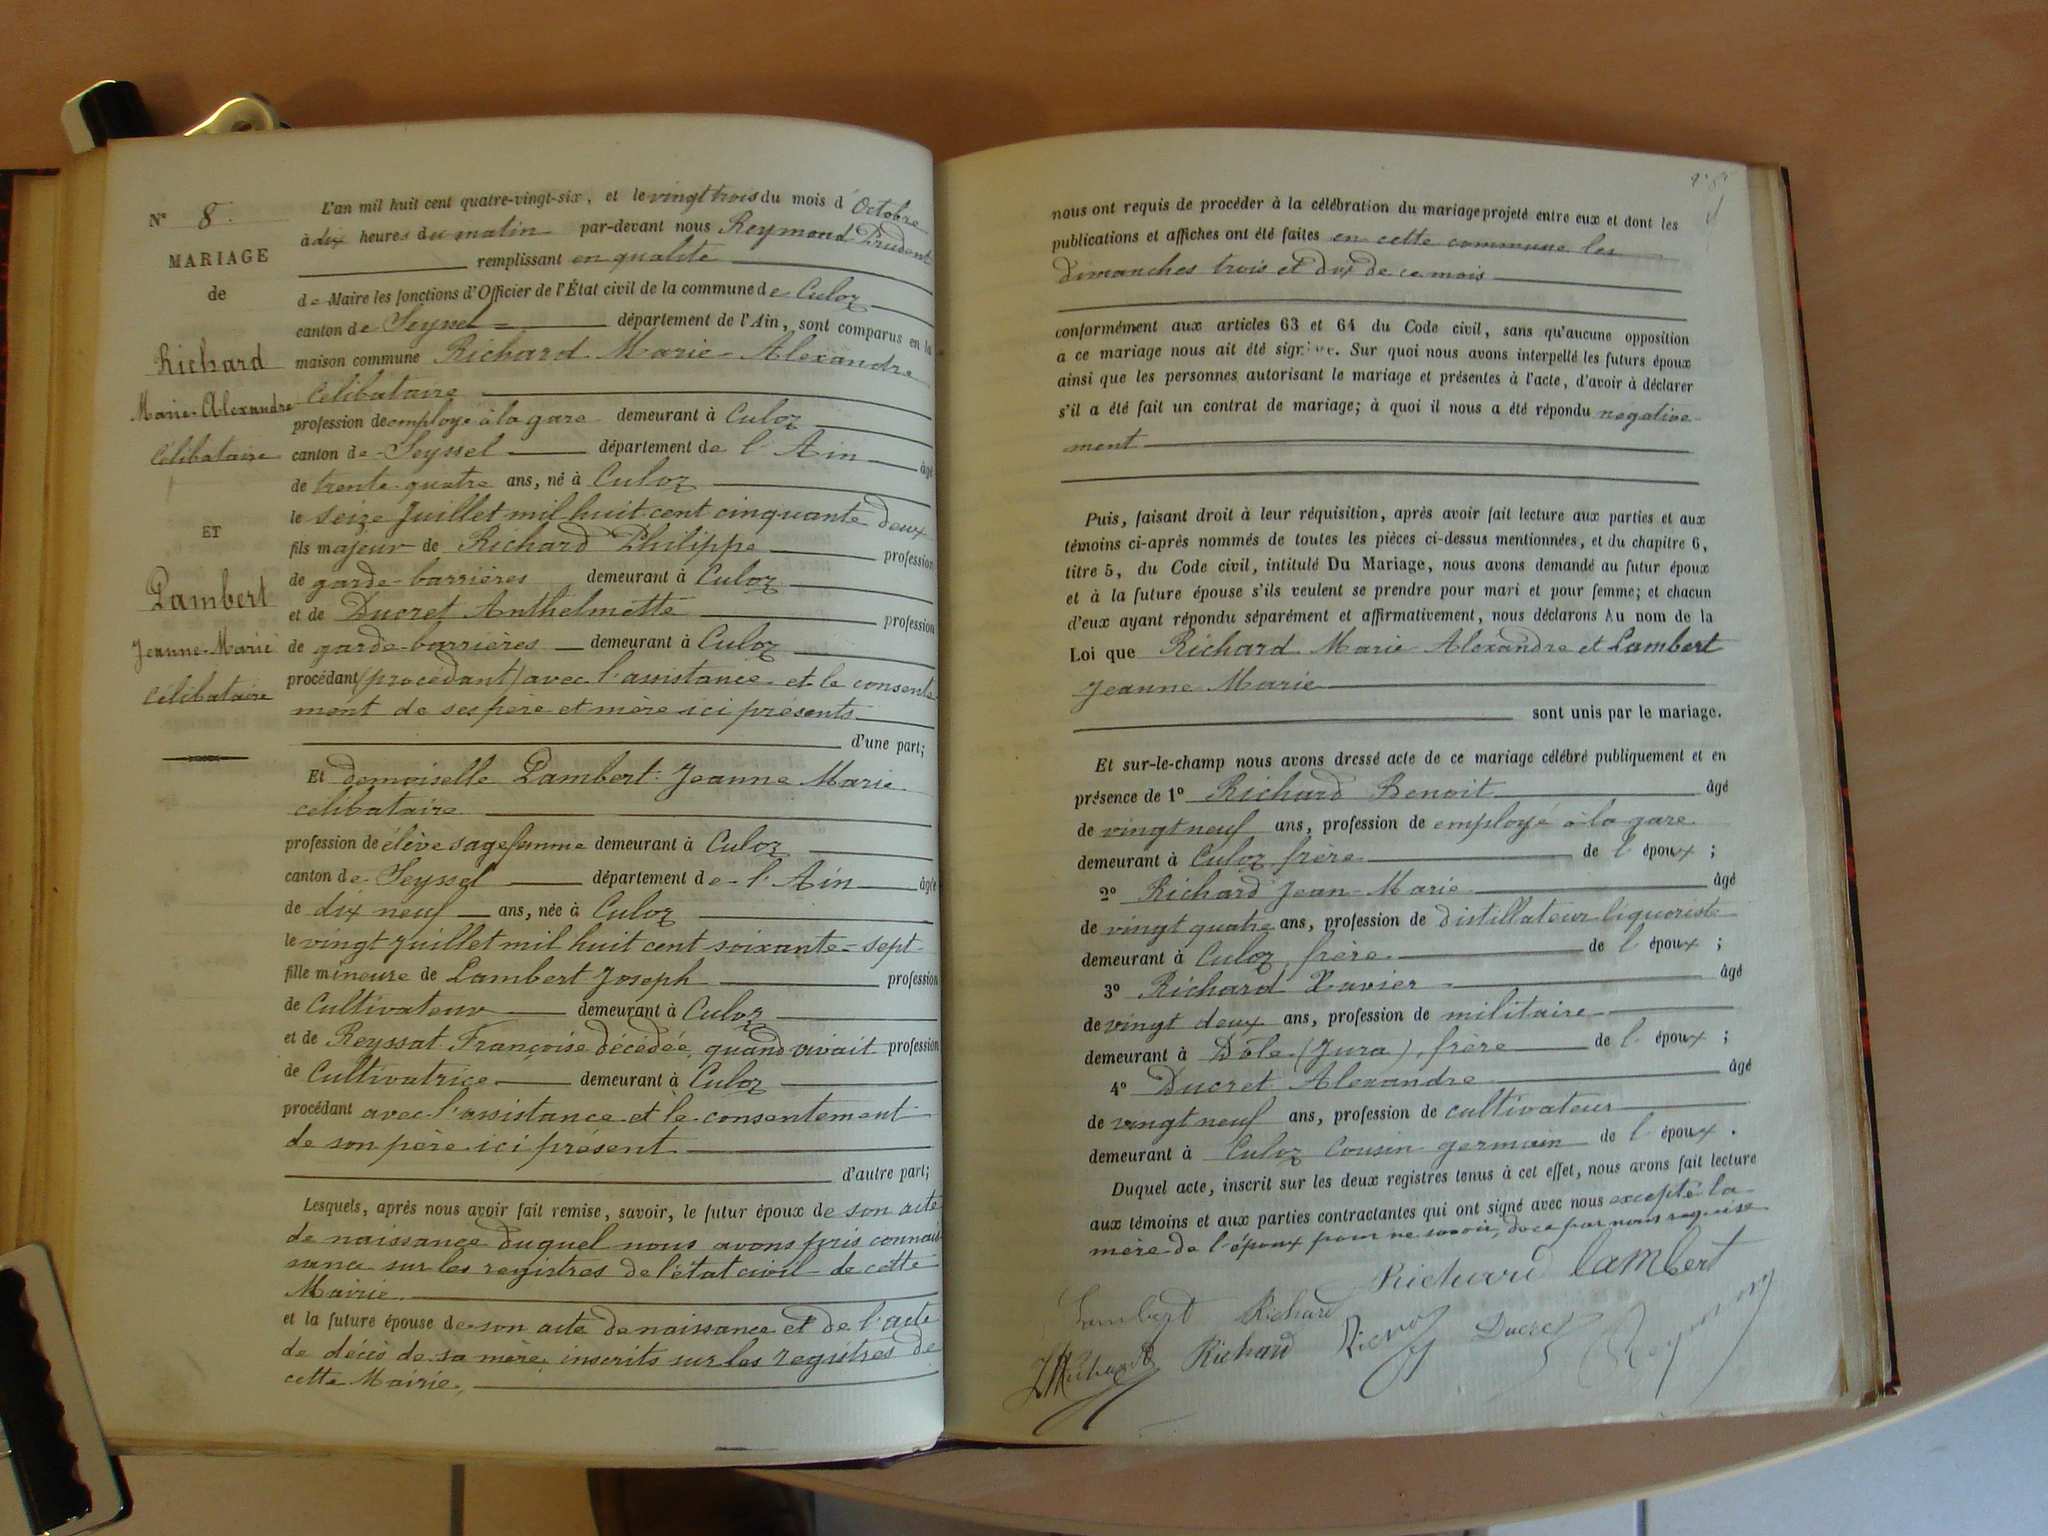 N° 8.
MARIAGE
de
Richard
Marie-Alexandre
Célibataire
ET
Lambert
Jeanne-Marie
Célibataire
L'an mil huit cent quatre-vingt-six, et le vingt trois du mois d'Octobre
à dix heures du matin par-devant nous Reymond Prudent
remplissant en qualité
de Maire les fonctions d'Officier de l'État civil de la commune de Culoz
canton de Seyssel département de l'Ain, sont comparus en la
maison commune Richard Marie-Alexandre
Célibataire
profession de employé à la gare demeurant à Culoz
canton de Seyssel département de l'Ain âgé
de trente-quatre ans, né à Culoz
le seize Juillet mil huit cent cinquante deux
fils majeur de Richard Philippe profession
de garde-barrières demeurant à Culoz
et de Ducret Anthelmette profession
de garde-barrières demeurant à Culoz
procédant (procédant) avec l'assistance et le consente
ment de ses père et mère ici présents
d'une part;
Et demoiselle Lambert Jeanne Marie
célibataire
profession de élève sage femme demeurant à Culoz
canton de Seyssel département de l'Ain âgée
de dix neuf ans, née à Culoz
le vingt Juillet mil huit cent soixante-sept
fille mineure de Lambert Joseph profession
de Cultivateur demeurant à Culoz
et de Reyssat Françoise décédée, quand vivait profession
de Cultivatrice demeurant à Culoz
procédant avec l'assistance et le consentement
de son père ici présent
d'autre part;
Lesquels, après nous avoir fait remise, savoir, le futur époux de son acte
de naissance duquel nous avons pris connais
sance sur les registres de l'état civil de cette
Mairie
et la future épouse de son acte de naissance et de l'acte
de décès de sa mère, inscrits sur les registres de
cette Mairie,
nous ont requis de procéder à la célébration du mariage projeté entre eux et dont les
publications et affiches ont été faites en cette commune les
dimanches trois et dix de ce mois
conformément aux articles 63 et 64 du Code civil, sans qu'aucune opposition
a ce mariage nous ait été signifiée. Sur quoi nous avons interpellé les futurs époux
ainsi que les personnes autorisant le mariage et présentes à l'acte, d'avoir à déclarer
s'il a été fait un contrat de mariage; à quoi il nous a été répondu négative-
ment
Puis, faisant droit à leur réquisition, après avoir fait lecture aux parties et aux
témoins ci-après nommés de toutes les pièces ci-dessus mentionnées, et du chapitre 6,
titre 5, du Code civil, intitulé Du Mariage, nous avons demandé au futur époux
et à la future épouse s'ils veulent se prendre pour mari et pour femme; et chacun
d'eux ayant répondu séparément et affirmativement, nous déclarons Au nom de la
Loi que Richard Marie-Alexandre et Lambert
Jeanne Marie
sont unis par le mariage.
Et sur-le-champ nous avons dressé acte de ce mariage célébré publiquement et en
présence de 1° Richard Benoit âgé
de vingt neuf ans, profession de employé à la gare
demeurant à Culoz, frère de l'époux;
2° Richard Jean-Marie âgé
de vingt quatre ans, profession de distillateur liquoriste
demeurant à Culoz, frère de l'époux;
3° Richard Xavier âgé
de vingt deux ans, profession de militaire
demeurant à Dôle (Jura), frère de l'époux;
4° Ducret Alexandre âgé
de vingt neuf ans, profession de cultivateur
demeurant à Culoz Cousin germain de l'époux.
Duquel acte, inscrit sur les deux registres tenus à cet effet, nous avons fait lecture
aux témoins et aux parties contractantes qui ont signé avec nous excepté la
mère de l'époux pour ne savoir, de ce par nous requise
Richard Lambert
Lambert Richard
Richard Richard Ducret Reymond